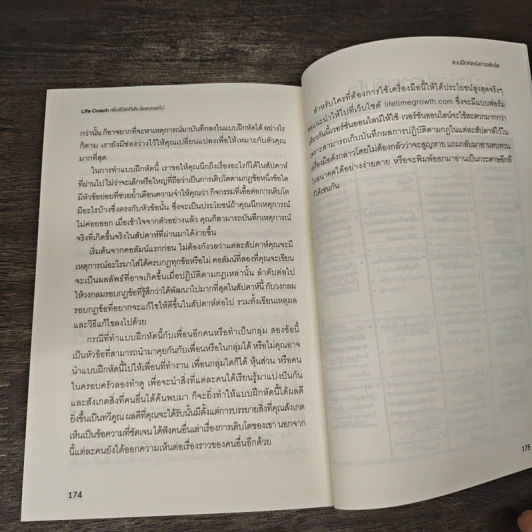 Life Coach เพื่อชีวิตที่เติบโตตลอดไป
กว่านั้น ก็อาจยากที่จะหาเหตุการณ์มาบันทึกลงในแบบฝึกหัดได้ อย่างไร
ก็ตาม เรายังมีช่องว่างไว้ให้คุณเปลี่ยนแปลงเพื่อให้เหมาะกับตัวคุณ
มากที่สุด
ในการทำแบบฝึกหัดนี้ เราขอให้คุณนึกถึงเรื่องอะไรก็ได้ในสัปดาห์
ที่ผ่านไป ไม่ว่าจะเล็กหรือใหญ่ที่ถือว่าเป็นการเติบโตตามกฎข้อหนึ่งข้อใด
มีหัวข้อย่อยที่ช่วยย้ำเตือนความจำให้คุณว่า กิจกรรมที่เอื้อต่อการเติบโต
มีอะไรบ้างซึ่งตรงกับหัวข้อนั้น ซึ่งจะเป็นประโยชน์ถ้าคุณนึกเหตุการณ์
ไม่ค่อยออก เมื่อเข้าใจจากตัวอย่างแล้ว คุณก็สามารถบันทึกเหตุการณ์
จริงที่เกิดขึ้นจริงในสัปดาห์ที่ผ่านมาได้ง่ายขึ้น
เริ่มต้นจากคอลัมน์แรกก่อน ไม่ต้องกังวลว่าแต่ละสัปดาห์คุณจะมี
เหตุการณ์อะไรมาใส่ได้ครบกฎทุกข้อหรือไม่ คอลัมน์ที่สองที่คุณจะเขียน
จะเป็นผลลัพธ์ที่อาจเกิดขึ้นเมื่อปฏิบัติตามกฎเหล่านั้น ลำดับต่อไป
ให้วงกลมรอบกฎข้อที่รู้สึกว่าได้พัฒนาไปมากที่สุดในสัปดาห์นี้ กับวงกลม
รอบกฎข้อที่อยากจะแก้ไขให้ดีขึ้นในสัปดาห์ต่อไป รวมทั้งเขียนเหตุผล
และวิธีแก้ไขลงไปด้วย
กรณีที่ทำแบบฝึกหัดนี้กับเพื่อนอีกคนหรือทำเป็นกลุ่ม สองข้อนี้
เป็นหัวข้อที่สามารถนำมาคุยกันกับเพื่อนหรือในกลุ่มได้ หรือไม่คุณอาจ
นำแบบฝึกหัดนี้ไปให้เพื่อนที่ทำงาน เพื่อนกลุ่มใดก็ได้ หุ้นส่วน หรือคน
ในครอบครัวลองทำดู เพื่อจะนำสิ่งที่แต่ละคนได้เรียนรู้มาแบ่งปันกัน
และสังเกตสิ่งที่คนอื่นได้ค้นพบมา ก็จะยิ่งทำให้แบบฝึกหัดนี้ได้ผลดี
ยิ่งขึ้นเป็นทวีคูณ ผลดีที่คุณจะได้รับนั้นมีตั้งแต่การบรรยายสิ่งที่คุณสังเกต
เห็นเป็นข้อความที่ชัดเจน ได้ฟังคนอื่นเล่าเรื่องการเติบโตของเขา นอกจาก
นี้แต่ละคนยังได้ออกความเห็นต่อเรื่องราวของคนอื่นอีกด้วย
174
แบบฝึกหัดเร่งการเติบโต
สำหรับใครที่ต้องการใช้เครื่องมือนี้ให้ได้ประโยชน์สูงสุดจริงๆ
แนะนำให้ไปที่เว็บไซต์ lifetimegrowth.com ซึ่งจะมีแบบฟอร์ม
เดียวกันนี้เวอร์ชันออนไลน์ให้ใช้ เวอร์ชันออนไลน์จะใช้สะดวกมากกว่า
เพราะสามารถเก็บบันทึกผลการปฏิบัติตามกฎในแต่ละสัปดาห์ไว้ใน
เครื่องมือดังกล่าวโดยไม่ต้องกลัวว่าจะสูญหาย แถมกลับมาอ่านทบทวน
ในอนาคตได้อย่างง่ายดาย หรือจะพิมพ์ออกมาอ่านเป็นกระดาษอีกที
ก็ได้เช่นกัน
175